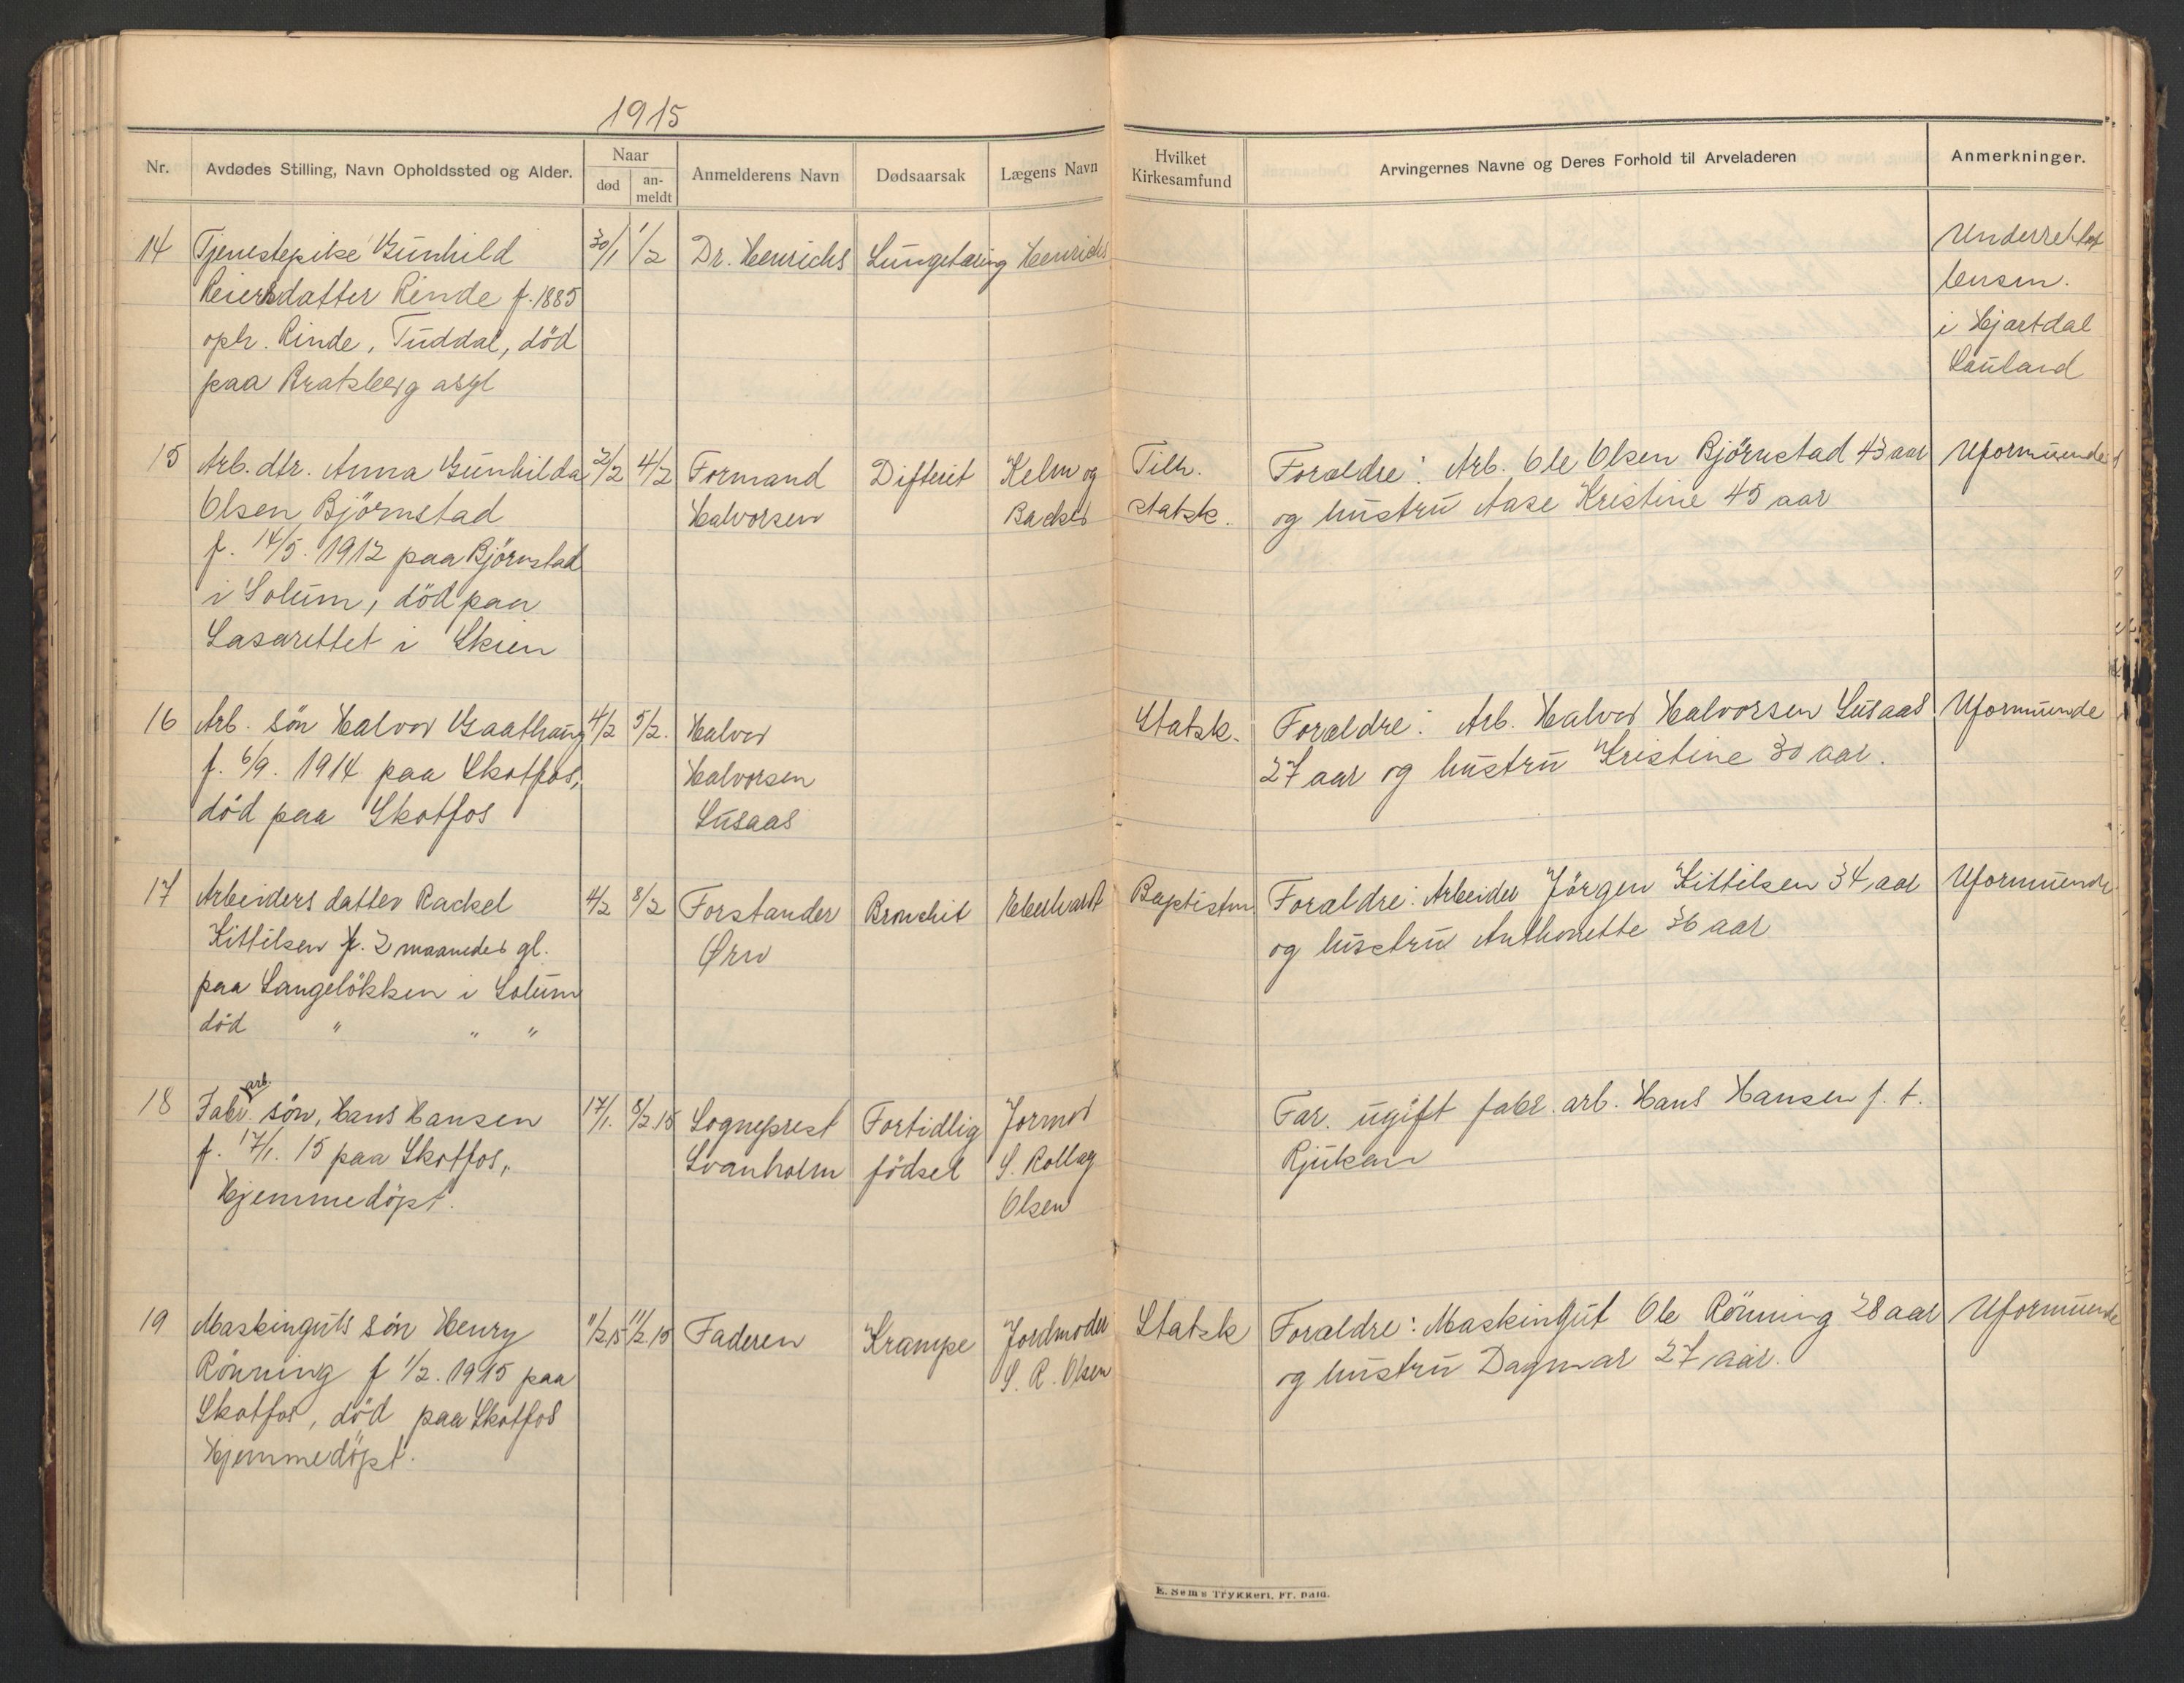 1915
Nr.
Avdødes Stilling, Navn Opholdssted og Alder.
Naar
død
an-
meldt
Anmelderens Navn
Dødsaarsak
Lægens Navn
Hvilket
Kirkesamfund
Arvingernes Navne og Deres Forhold til Arveladeren
Anmerkninger.
14
Tjenestepike Gunhild
Reiersdatter Rinde f. 1885
oph. Rinde, Tuddal, död
paa Bratsberg asyl
30/1
1/2
Dr. Henrichs
Lungetæring
Henrichs
i Hjartdal
Sauland
15
Arb. dtr. Anna Gunhilda
Olsen Björnstad
f. 14/5. 1912 paa Björnstad
i Solum, död paa
Lasarettet i Skien
2/2
4/2
Formand
Halvorsen
Difterit
Kelm og
Backer
Tilh.
statsk.
Forældre: Arb. Ole Olsen Björnstad 43 aar
og hustru Aase Kristine 45 aar
Uformuende
16
Arb. sön Halvor Gaathaug
f. 6/9. 1914 paa Skotfos,
död paa Skotfos
4/2
5/2.
Halvor
Halvorsen
Lusaas
Statsk.
Forældre: Arb. Halvor Halvorsen Lusaas
27 aar og hustru Kristine 30 aar.
Uformuende
17
Arbeiders datter Rackel
Kittilsen f. 2 maaneder gl.
paa Langelökken i Solum
död " " "
4/2
8/2
Forstander
Ørn
Bronchit
Eberhardt
Baptistm
Forældre: Arbeider Jörgen Kittilsen 34 aar
og hustru Anthonette 36 aar
Uformuende
18
arb.
Fabr. sön, Hans Hansen
f. 17/1. 15 paa Skotfos,
Hjemmedöpt.
17/1.
8/2 15
Sogneprest
Svanholm
Fortidlig
födsel
Jormor
S. Rollag
Olsen
Far. ugift fabr. arb. Hans Hansen f. t.
Rjukan
19
Maskinguts sön Henry
Rönning f 1/2. 1915 paa
Skotfos, död paa Skotfos
Hjemmedöpt.
11/2 15
11/2 15
Faderen
Krampe
Jordmoder
S. R. Olsen
Statsk
Forældre: Maskingut Ole Rönning 28 aar
og hustru Dagmar 27 aar.
Uformuende
E. Sems Trykkeri, Fr. hald.